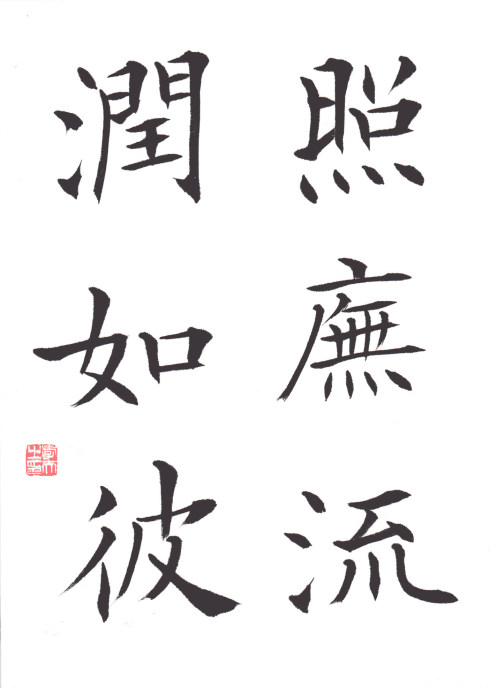 照廡流
潤如彼